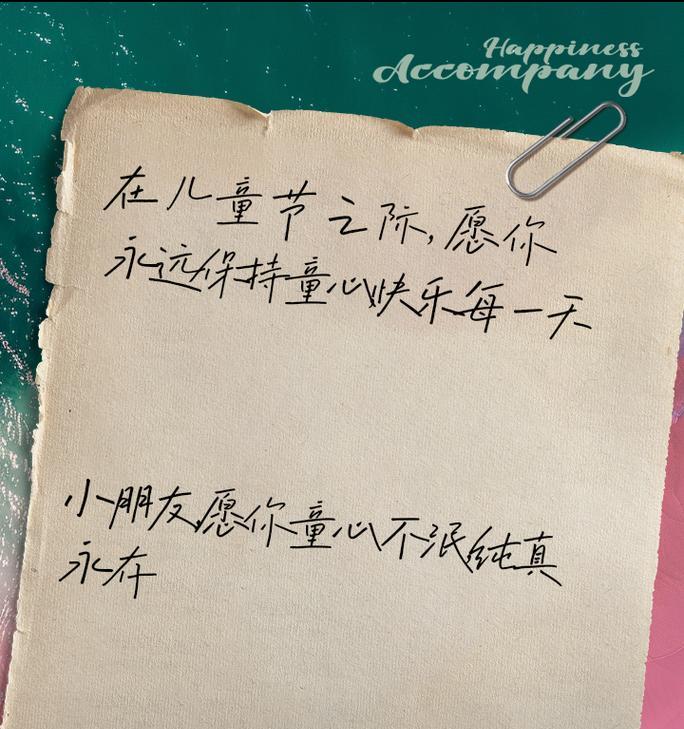 Happiness
Accompany
在儿童节之际,愿你
永远保持童心快乐每一天
小朋友,愿你童心不泯纯真
永存